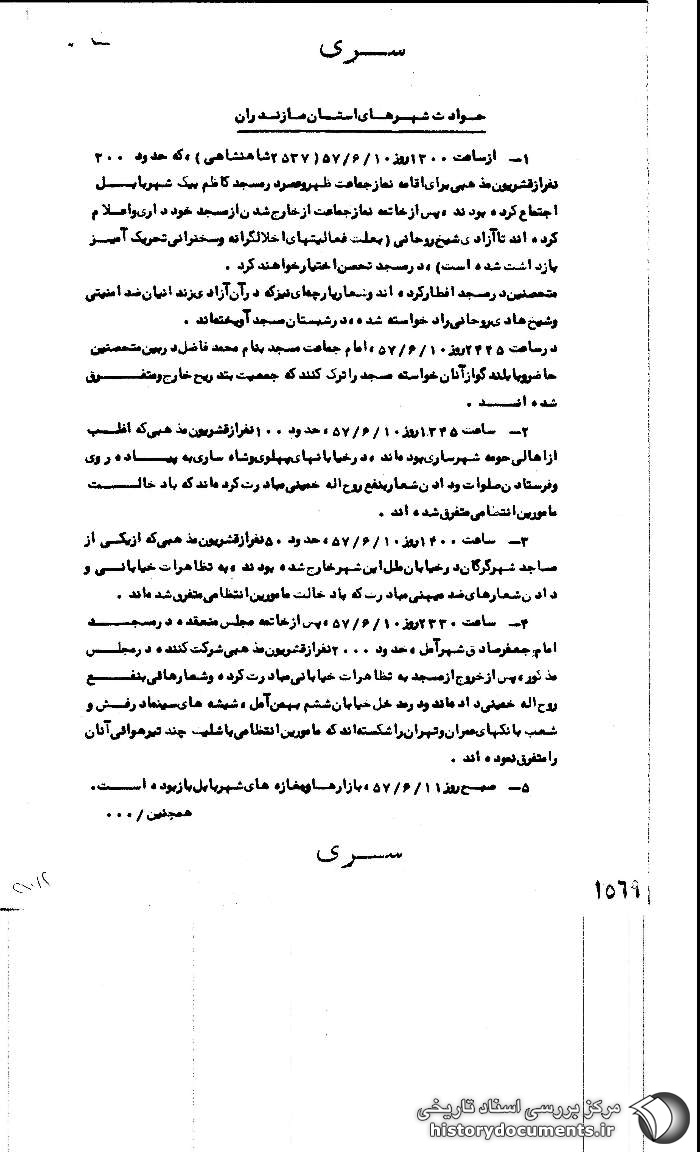 سری
حوادث شهرهای استان مازندران
۱- از ساعت ۱۳۰۰ روز ۵۷/۶/۱۰ (۲۵۳۷ شاهنشاهی) ، که حدود ۳۰۰
نفر از قشریون مذهبی برای اقامه نماز جماعت ظهر و عصر در مسجد کاظم بیک شهر بابل
اجتماع کرده بودند ، پس از خاتمه نماز جماعت از خارج شدن از مسجد خودداری و اعلام
کرده اند تا آزادی شیخ روحانی (بعلت فعالیتهای اخلالگرانه و سخنرانی تحریک آمیز
بازداشت شده است) ، در مسجد تحصن اختیار خواهند کرد .
متحصنین در مسجد افطار کرده اند و شعار پارچه‌ای نیز که در آن آزادی زندانیان ضد امنیتی
و شیخ هادی روحانی را درخواست شده ، در شبستان مسجد آویخته‌اند .
در ساعت ۲۴۴۵ روز ۵۷/۶/۱۰ ، امام جماعت مسجد بنام محمد فاضل در بین متحصنین
حاضر و با بلندگو از آنان خواسته مسجد را ترک کنند که جمعیت بتدریج خارج و متفرق
شده اند .
۲- ساعت ۱۳۴۵ روز ۵۷/۶/۱۰ ، حدود ۱۰۰ نفر از قشریون مذهبی که اغلب
از اهالی حومه شهر ساری بوده‌اند ، در خیابانهای پهلوی و شاه ساری به پیاده روی
و فرستادن صلوات و دادن شعار بنفع روح اله خمینی مبادرت کرده‌اند که با دخالت
مامورین انتظامی متفرق شده اند .
۳- ساعت ۱۴۰۰ روز ۵۷/۶/۱۰ ، حدود ۵۰ نفر از قشریون مذهبی که از یکی از
مساجد شهر گرگان در خیابان ملل این شهر خارج شده بودند ، به تظاهرات خیابانی و
دادن شعارهای ضد میهنی مبادرت که با دخالت مامورین انتظامی متفرق شده‌اند .
۴- ساعت ۲۳۳۰ روز ۵۷/۶/۱۰ ، پس از خاتمه مجلس منعقده در مسجد
امام جعفر صادق شهر آمل ، حدود ۲۰۰۰ نفر از قشریون مذهبی شرکت کننده در مجلس
مذکور ، پس از خروج از مسجد به تظاهرات خیابانی مبادرت کرده و شعارهائی بنفع
روح اله خمینی داده‌اند و در مدخل خیابان ششم بهمن آمل ، شیشه های سینما درفش و
شعب بانکهای عمران و تهران را شکسته‌اند که مامورین انتظامی با شلیک چند تیر هوائی آنان
را متفرق نموده اند .
۵- صبح روز ۵۷/۶/۱۱ ، بازارها و مغازه های شهر بابل باز بوده است.
همچنین /۰۰۰
سری
۱۵۶۹
مرکز بررسی اسناد تاریخی
historydocuments.ir